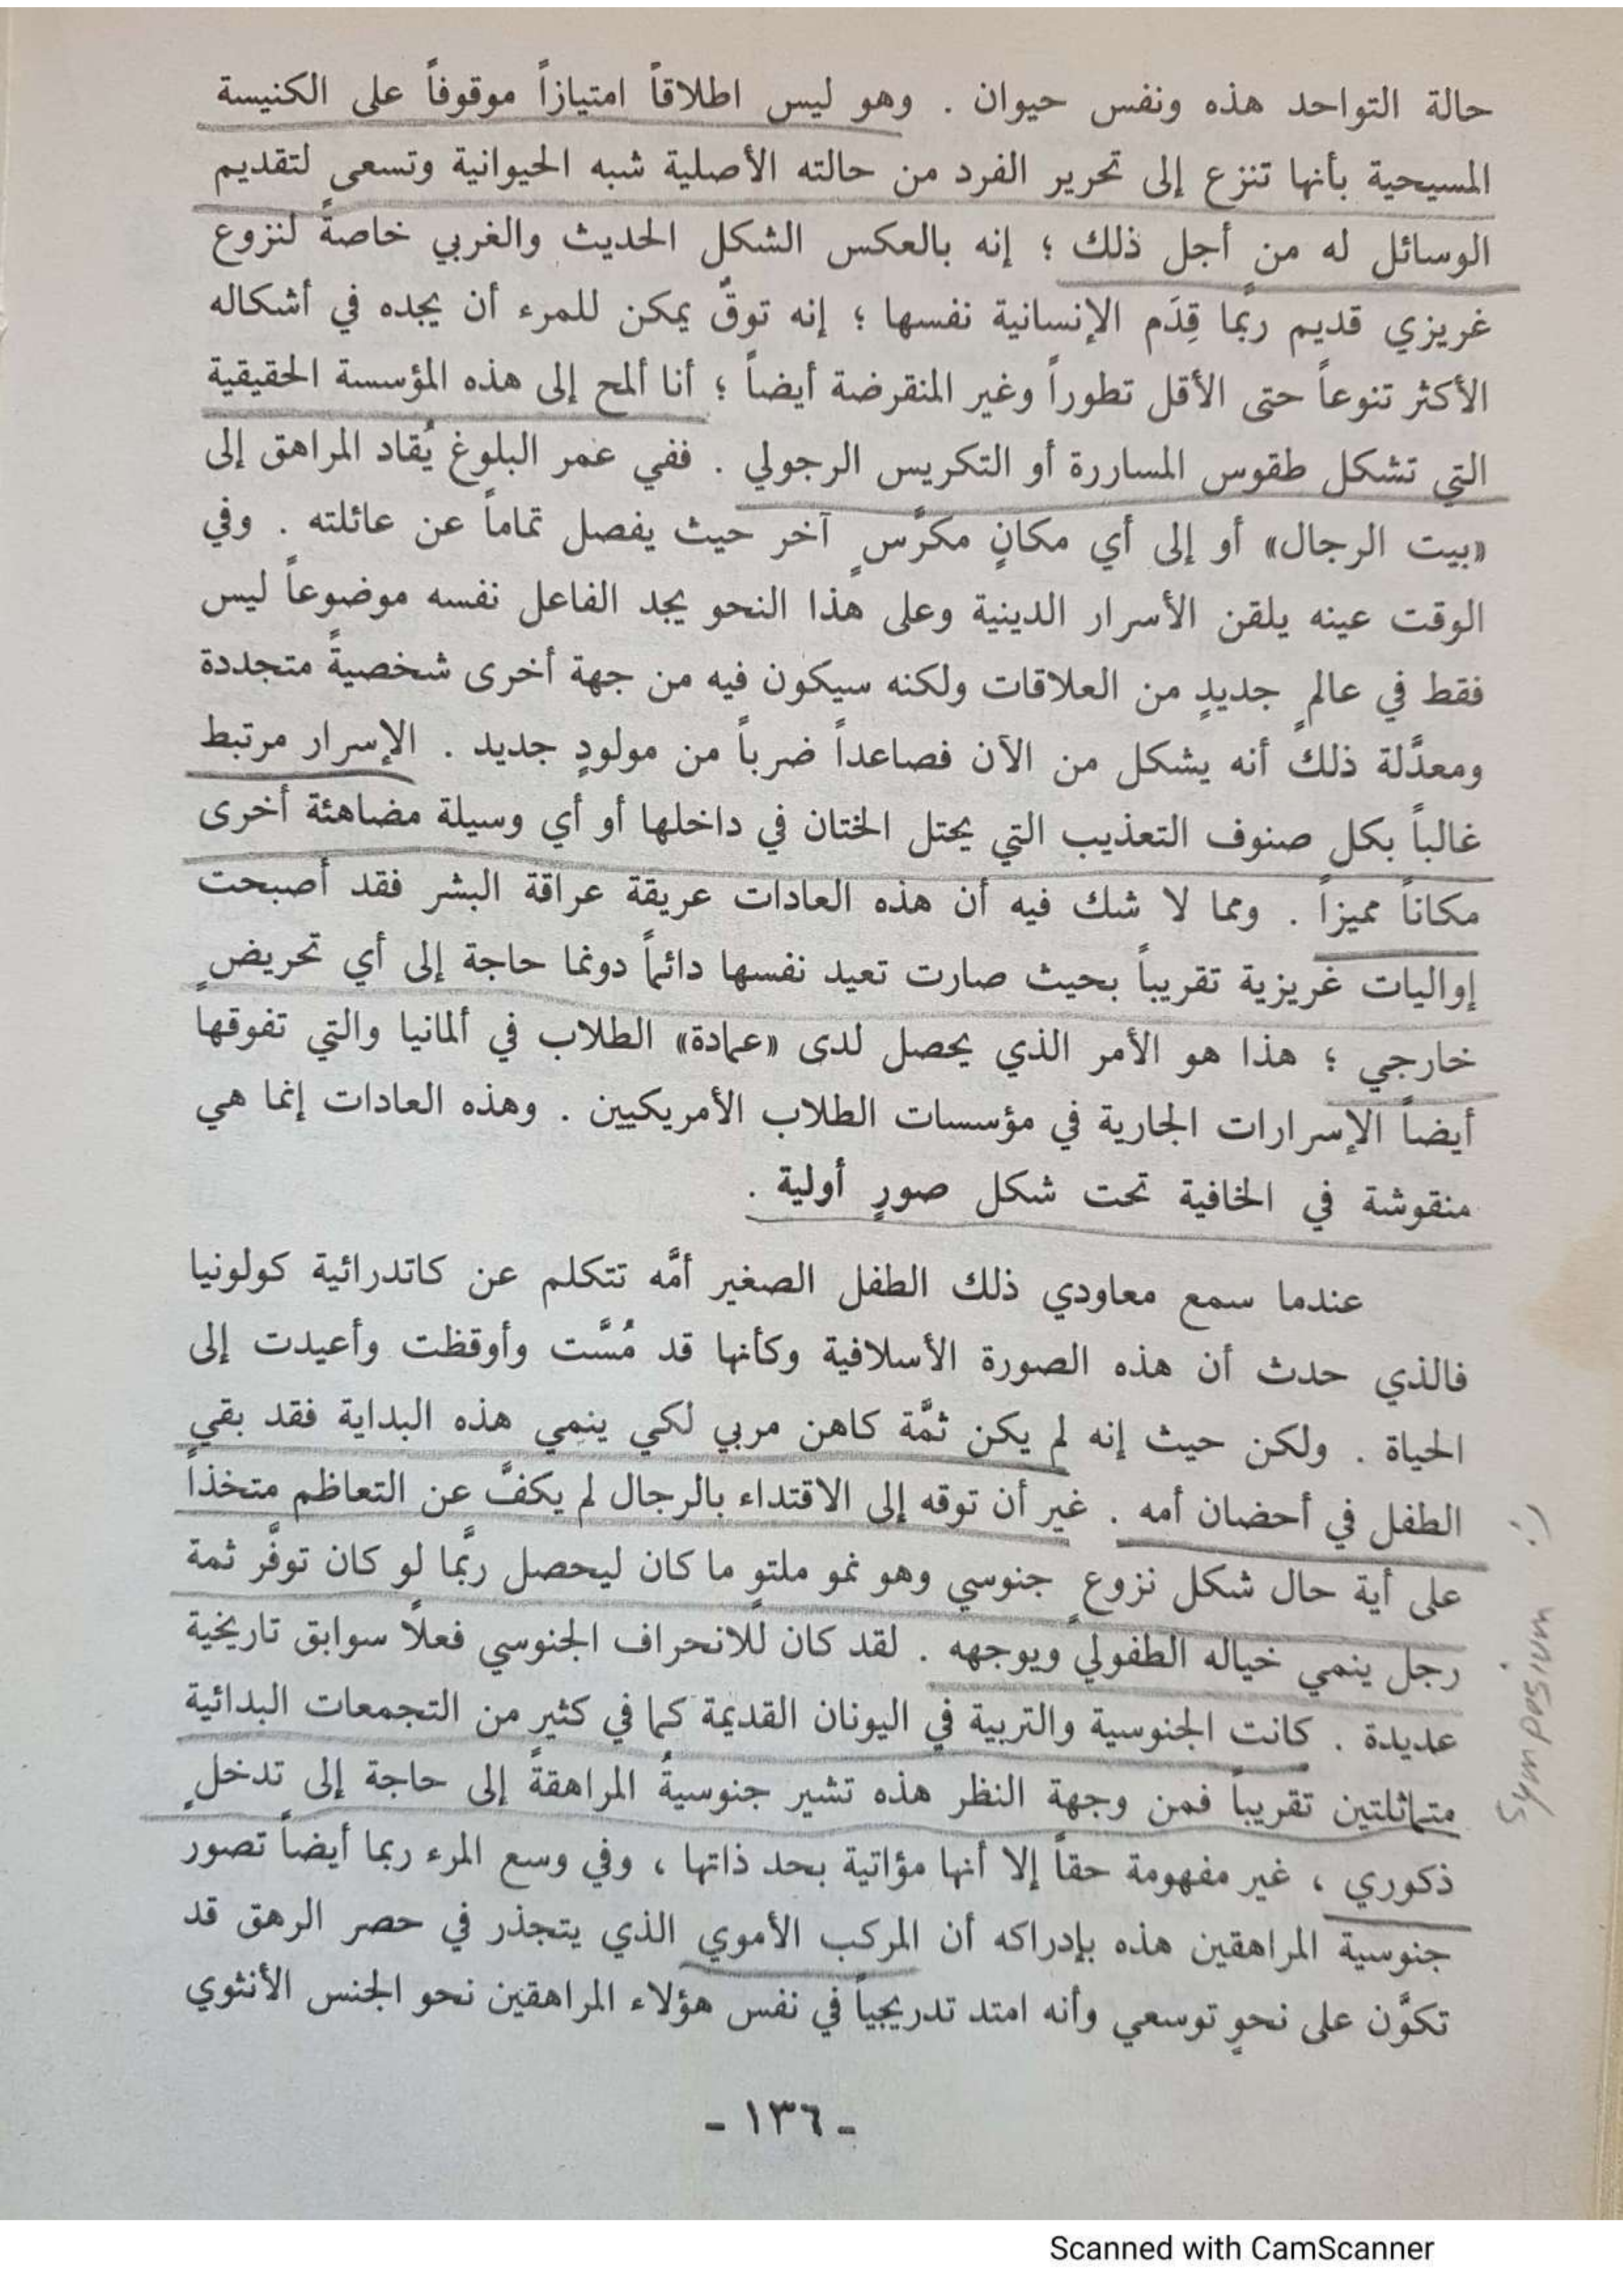 حالة التواحد هذه ونفس حيوان . وهو ليس اطلاقاً امتيازاً موقوفاً على الكنيسة
المسيحية بأنها تنزع إلى تحرير الفرد من حالته الأصلية شبه الحيوانية وتسعى لتقديم
الوسائل له من أجل ذلك ؛ إنه بالعكس الشكل الحديث والغربي خاصةً لنزوع
غريزي قديم ربما قِدَم الإنسانية نفسها ؛ إنه توقٌ يمكن للمرء أن يجده في أشكاله
الأكثر تنوعاً حتى الأقل تطوراً وغير المنقرضة أيضاً ؛ أنا ألمح إلى هذه المؤسسة الحقيقية
التي تشكل طقوس المساررة أو التكريس الرجولي . ففي عمر البلوغ يُقاد المراهق إلى
«بيت الرجال» أو إلى أي مكانٍ مكرَّسٍ آخر حيث يفصل تماماً عن عائلته . وفي
الوقت عينه يلقن الأسرار الدينية وعلى هذا النحو يجد الفاعل نفسه موضوعاً ليس
فقط في عالمٍ جديدٍ من العلاقات ولكنه سيكون فيه من جهة أخرى شخصيةً متجددة
ومعدَّلة ذلك أنه يشكل من الآن فصاعداً ضرباً من مولودٍ جديد . الإسرار مرتبط
غالباً بكل صنوف التعذيب التي يحتل الختان في داخلها أو أي وسيلة مضاهئة أخرى
مكاناً مميزاً . ومما لا شك فيه أن هذه العادات عريقة عراقة البشر فقد أصبحت
إواليات غريزية تقريباً بحيث صارت تعيد نفسها دائماً دونما حاجة إلى أي تحريضٍ
خارجي ؛ هذا هو الأمر الذي يحصل لدى «عمادة» الطلاب في ألمانيا والتي تفوقها
أيضاً الإسرارات الجارية في مؤسسات الطلاب الأمريكيين . وهذه العادات إنما هي
منقوشة في الخافية تحت شكل صورٍ أولية .
عندما سمع معاودي ذلك الطفل الصغير أمَّه تتكلم عن كاتدرائية كولونيا
فالذي حدث أن هذه الصورة الأسلافية وكأنها قد مُسَّت وأوقظت وأعيدت إلى
الحياة . ولكن حيث إنه لم يكن ثمَّة كاهن مربي لكي ينمي هذه البداية فقد بقي
الطفل في أحضان أمه . غير أن توقه إلى الاقتداء بالرجال لم يكفَّ عن التعاظم متخذاً
على أية حال شكل نزوعٍ جنوسي وهو نمو ملتوٍ ما كان ليحصل ربَّما لو كان توفَّر ثمة
رجل ينمي خياله الطفولي ويوجهه . لقد كان للانحراف الجنوسي فعلاً سوابق تاريخية
عديدة . كانت الجنوسية والتربية في اليونان القديمة كما في كثير من التجمعات البدائية
متماثلتين تقريباً فمن وجهة النظر هذه تشير جنوسيةُ المراهقةً إلى حاجة إلى تدخلٍ
ذكوري ، غير مفهومة حقاً إلا أنها مؤاتية بحد ذاتها ، وفي وسع المرء ربما أيضاً تصور
جنوسية المراهقين هذه بإدراكه أن المركب الأموي الذي يتجذر في حصر الرهق قد
تكوَّن على نحوٍ توسعي وأنه امتد تدريجياً في نفس هؤلاء المراهقين نحو الجنس الأنثوي
- ١٣٦ -
Symposium :)
Scanned with CamScanner